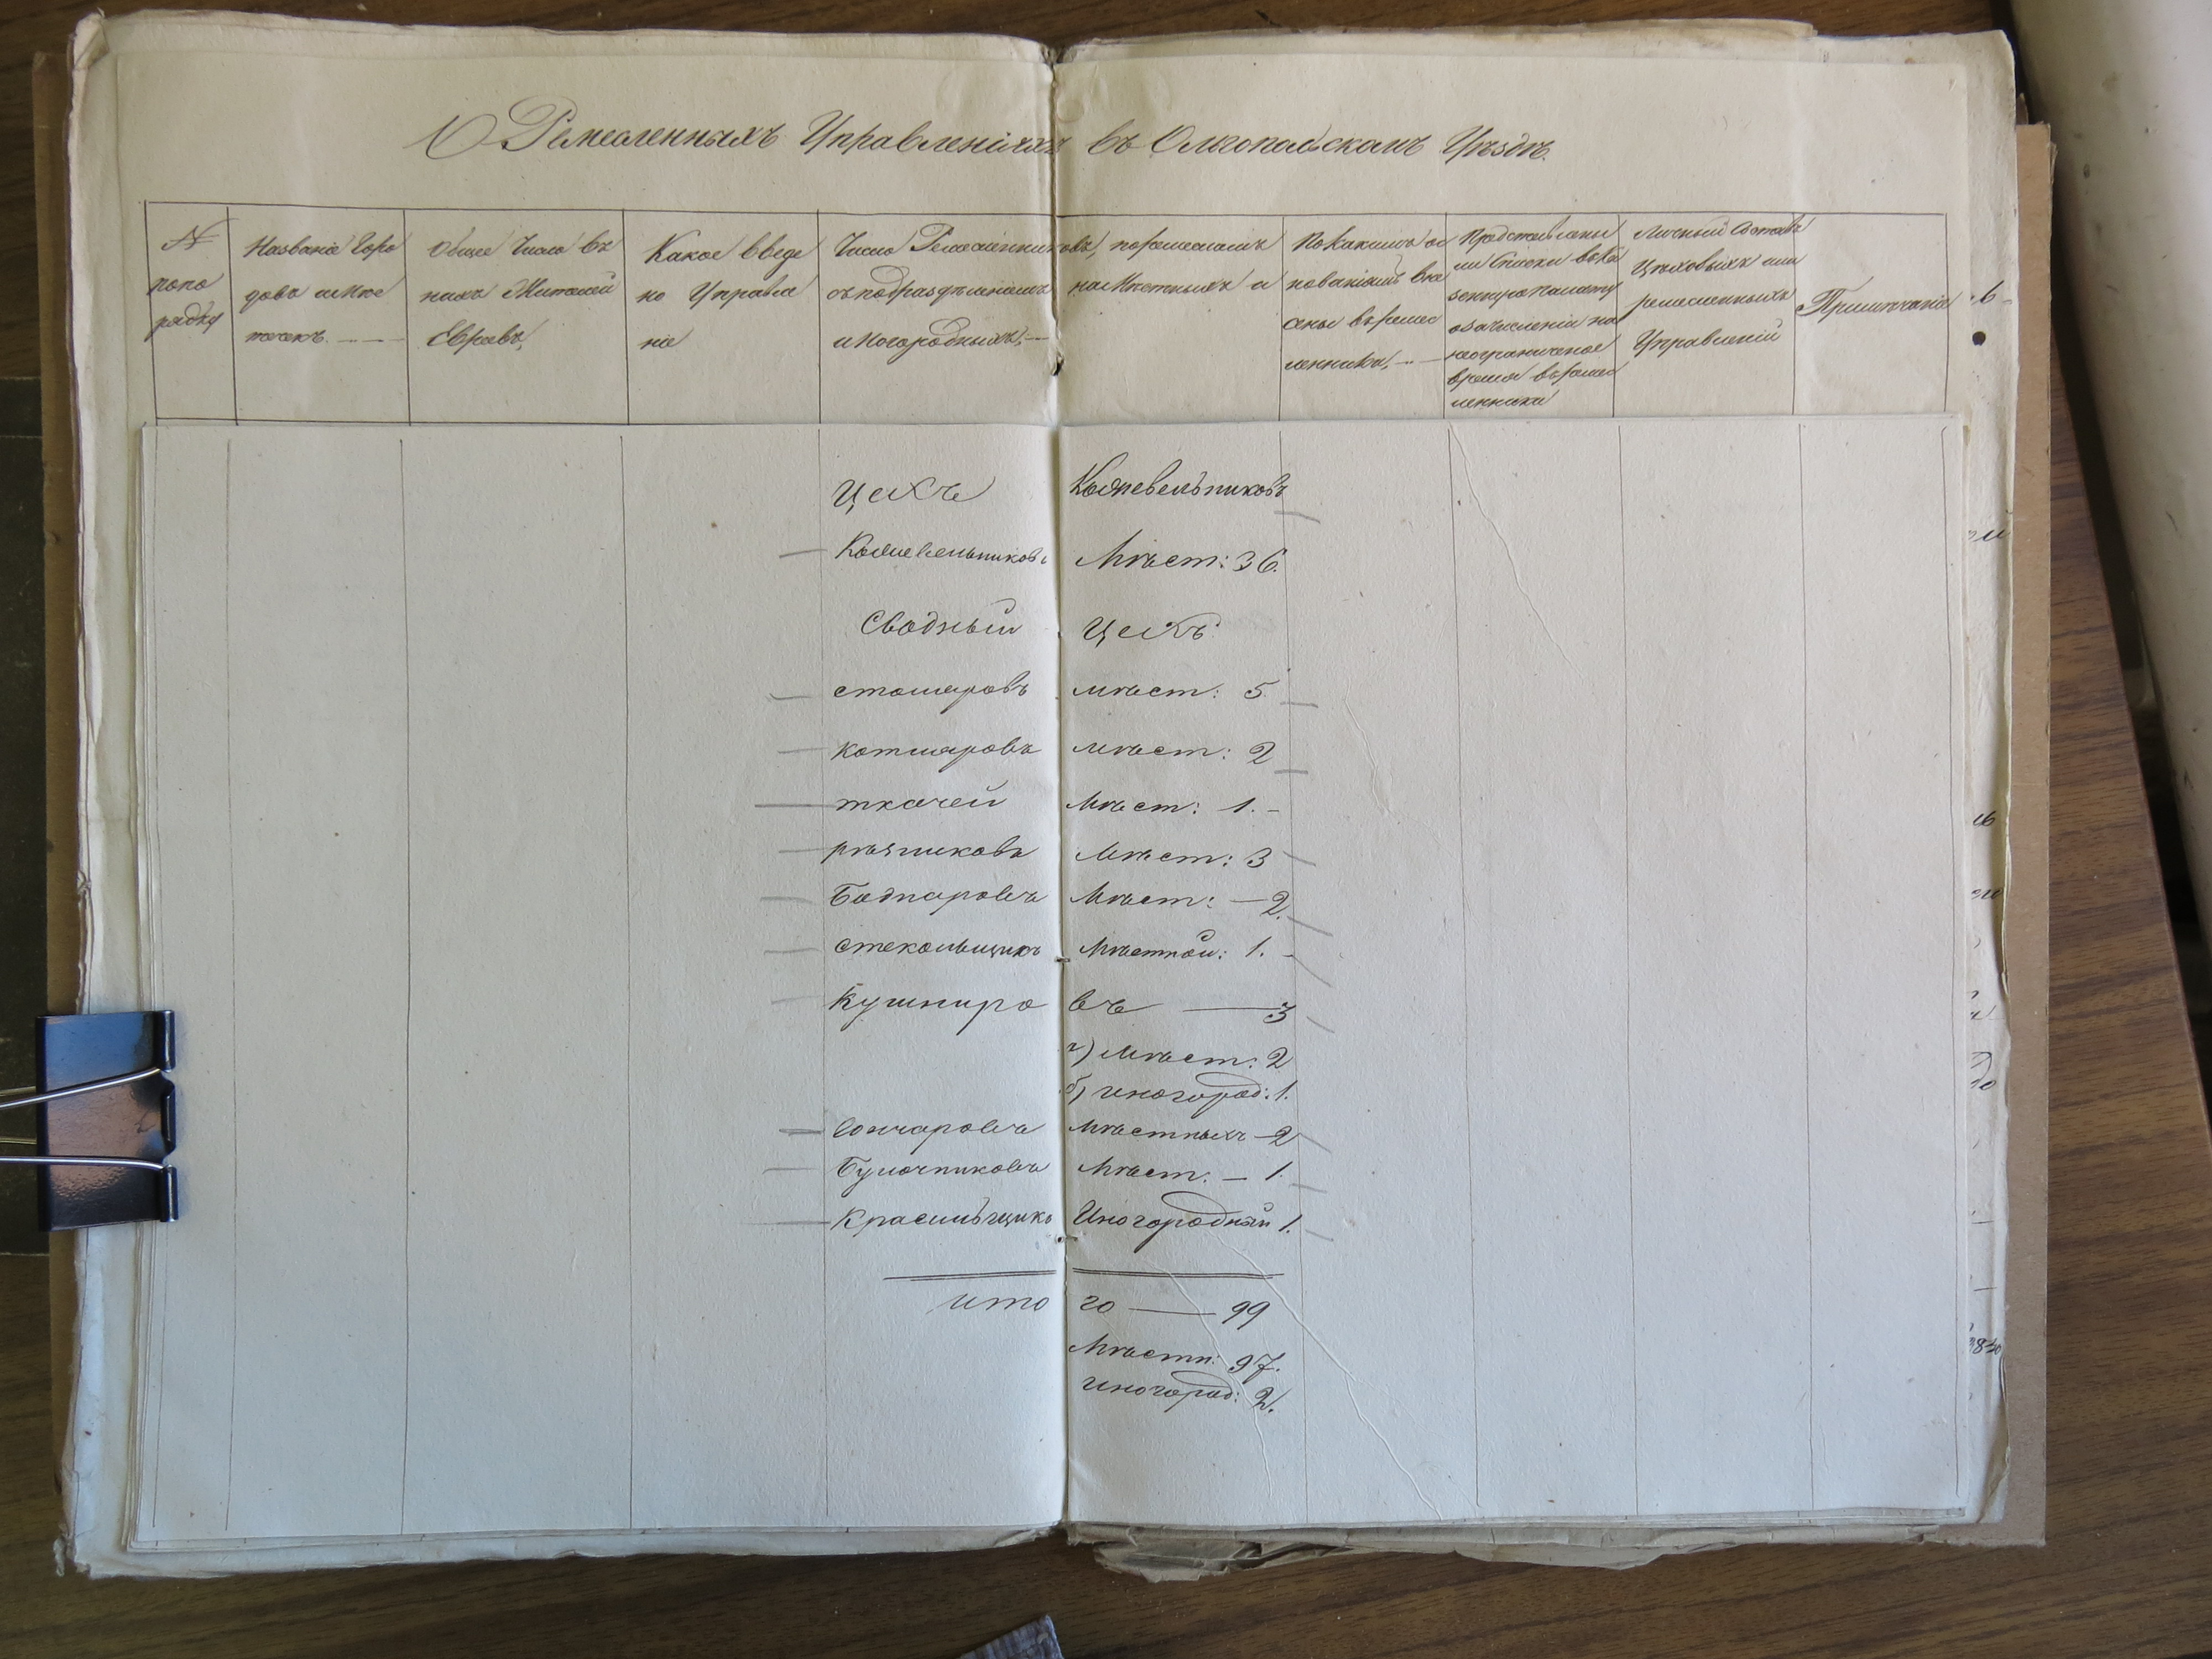 О Ремесленныхъ Управленіяхъ въ Ольгопольскомъ Уѣздѣ.
№
попо
рядку
Названіе Горо
довъ имѣс
течекъ.
Общее Число въ
нихъ Жителей
Евреевъ,
Какое введе
но Управле
ніе
Число Ремесленниковъ, поремесламъ
съ подраздѣленіемъ на Мѣстныхъ и
иногородныхъ,
По какимъ ос
нованіямъ вне
сены въремес
ленники,
Представлены
ли Списки въКа
зенную палату
озачисленіи на
неограниченое
время въремес
ленники
Личный Составъ
Цѣховыхъ или
ремесленныхъ
Управленій
Примѣчаніе
Цехъ Кожевельниковъ
Кожевельниковъ Мѣст: 36.
Сводный Цехъ
столяровъ мѣст: 5.
котляровъ мѣст: 2
ткачей Мѣст: 1.
рѣзниковъ Мѣст: 3
Боднаровъ Мѣст: — 2.
стекольщикъ Мѣстной: 1.
Кушниро въ — 3
а) Мѣст: 2
б) иногород: 1.
Гончаровъ Мѣстныхъ — 2
Булочниковъ Мѣст. — 1.
Красильщикъ Иногородный 1.
ито го — 99
Мѣстн: 97.
иногород: 2.